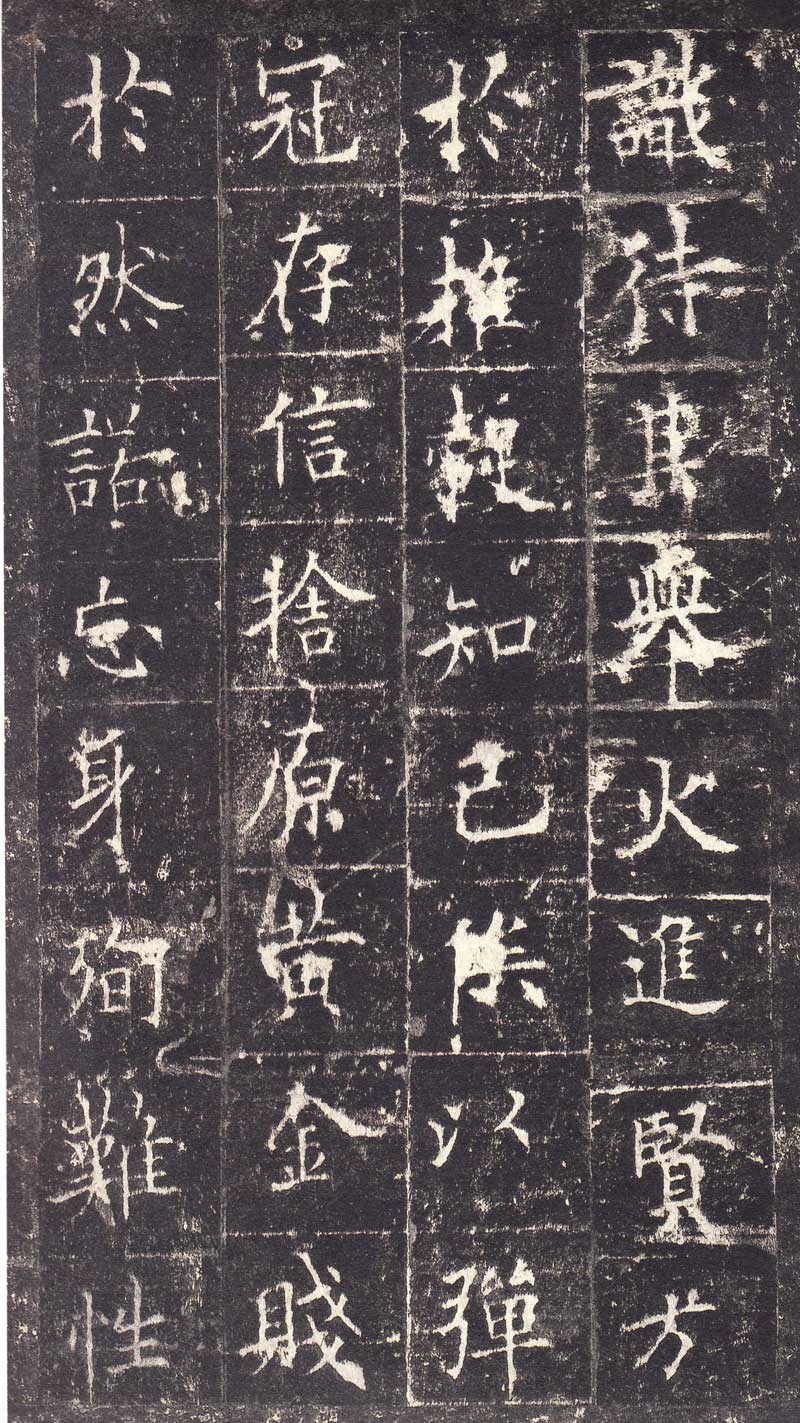 識待其舉火進賢方
於推轂知己俟以彈
冠存信捨原黃金賤
於然諾忘身殉難性